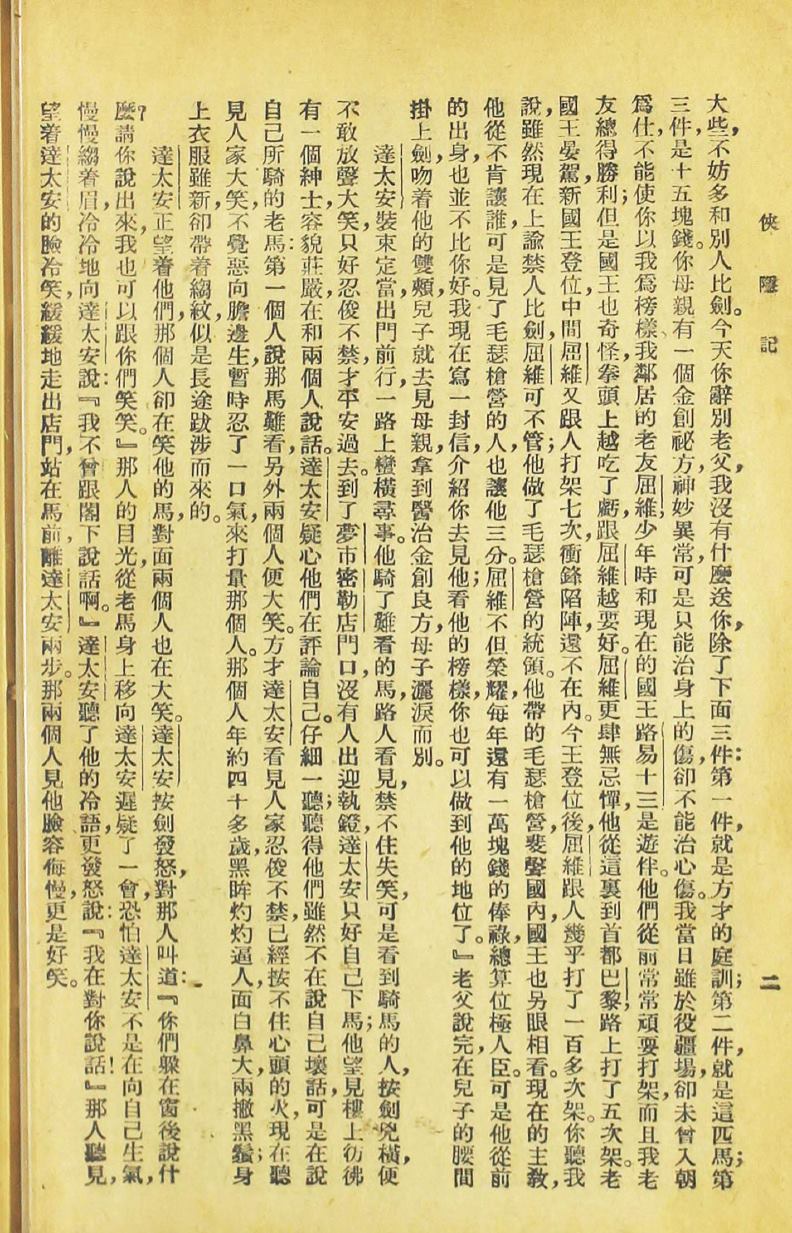 俠隱記
二
大些，不妨多和別人比劍。今天你辭別老父，我沒有什麼送你，除了下面三件：第一件，就是方才的庭訓；第二件，就是這匹馬；第
三件，是十五塊錢。你母親有一個金創祕方，神妙異常，可是只能治身上的傷，卻不能治心傷。我當日雖於役疆場，卻未曾入朝
爲仕，不能使你以我爲榜樣、我鄰居的老友屈維，少年時和現在的國王路易十三是遊伴。他們從前常常頑耍打架，而且我老
友總得勝利；但是國王也奇怪，拳頭上越吃了虧，跟屈維越要好。屈維更肆無忌憚，他從這裏到首都巴黎，路上打了五次架。老
國王晏駕，新國王登位，中間屈維又跟人打架七次，衝鋒陷陣，還不在內。今王登位後，屈維跟人幾乎打了一百多次架。你聽我
說，雖然現在上諭禁人比劍，屈維可不管；他做了毛瑟槍營的統領。他帶的毛瑟槍營，蜚聲國內，國王也另眼相看。現在的主教，
他從不肯讓誰，可是見了毛瑟槍營的人，也讓他三分。屈維不但榮耀，每年還有一萬塊錢的俸祿，總算位極人臣。可是他從前
的出身，也並不比你好。我現在寫一封信，介紹你去見他，看他的榜樣，你也可以做到他的地位了。』老父說完，在兒子的腰間
掛上劍，吻着他的雙頰，兒子就去見母親，拿到醫治金創良方，母子灑淚而別。
達太安裝束定當，出門前行，一路上蠻橫尋事。他騎了難看的馬，路人看見，禁不住失笑，可是看到騎馬的人，按劍兇橫，便
不敢放聲大笑，只好忍俊不禁，才平安過去。到了夢市密勒店門口，沒有人出迎執鐙，達太安只好自己下馬；他望見樓上彷彿
有一個紳士，容貌莊嚴，在和兩個人說話。達太安疑心他們在評論自己。仔細一聽；聽得他們雖然不在說自己壞話，可是在說
自己所騎的老馬：第一個人說那馬難看，另外兩個人便大笑。方才達太安看見人家忍俊不禁，已經按不住心頭的火，現在聽
見人家大笑，不覺惡向膽邊生，暫時忍了一口氣，來打量那個人。那個人年約四十多歲，黑眸灼灼逼人，面白鼻大，兩撇黑鬚；身
上衣服雖新，卻帶着縐紋，似是長途跋涉而來的。
達太安正望着他們，那個人卻在笑他的馬，對面兩個人也在大笑。達太安按劍發怒，對那人叫道：『你們躲在窗後說什
麼？請你說出來，我也可以跟你們笑笑。』那人的目光，從老馬身上移向達太安，遲疑了一會，恐怕達太安不是在向自己生氣，
慢慢縐着眉，冷冷地向達太安說：『我不曾跟閣下說話啊。』達太安聽了他的冷語，更發怒說：『我在對你說話！』那人聽見，
望着達太安的臉冷笑，緩緩地走出店門，站在馬前，離達太安兩步。那兩個人見他臉容侮慢，更是好笑。